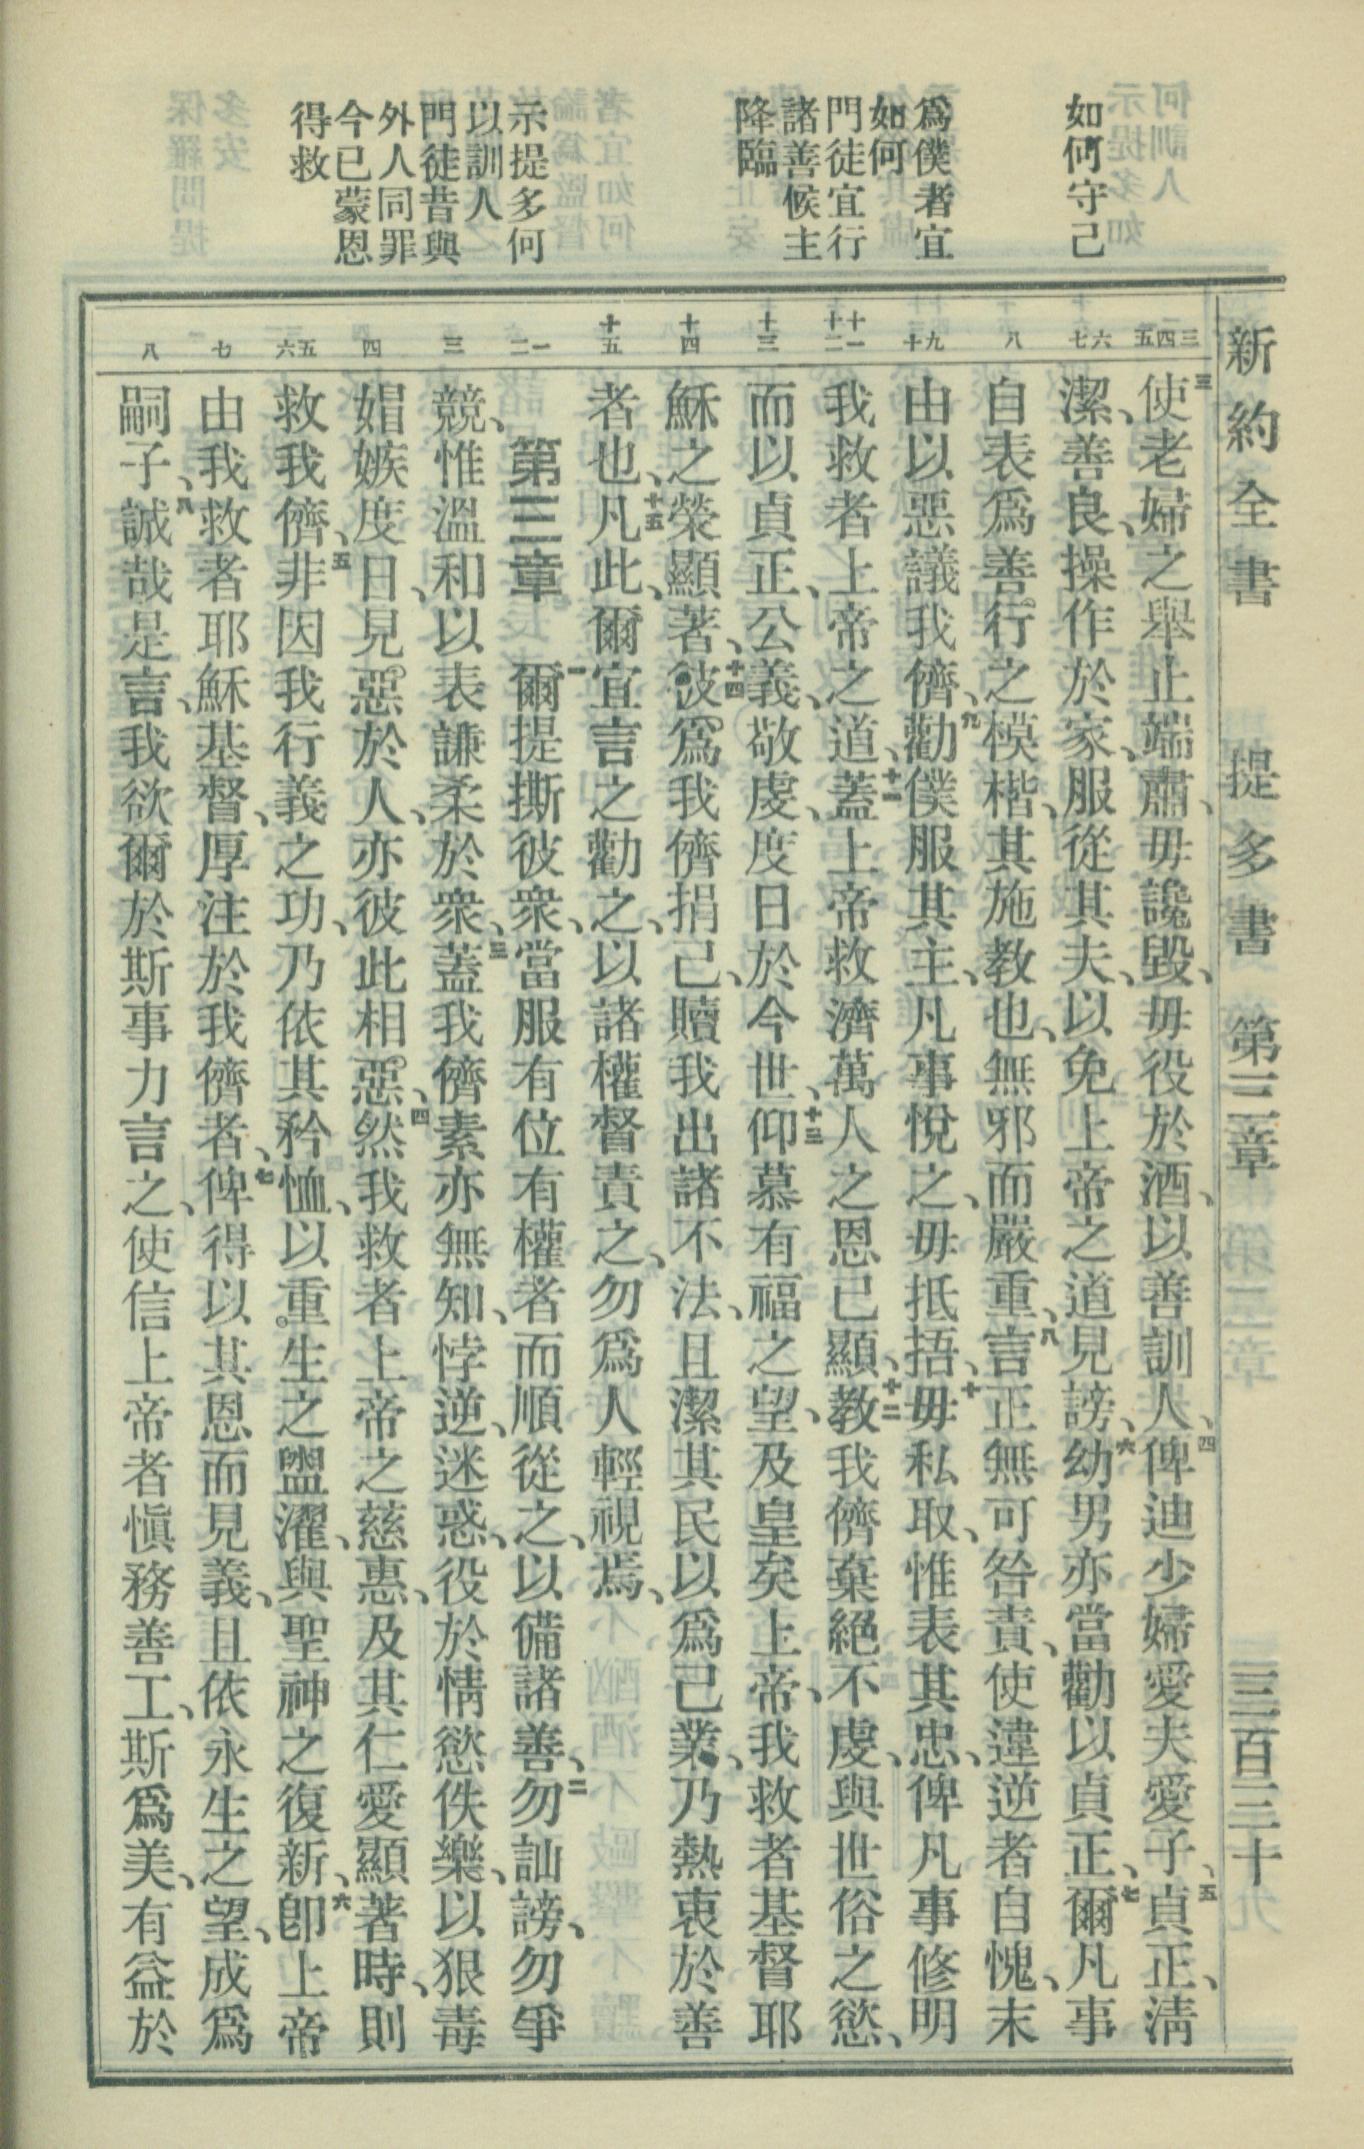 新約全書　提多書　第三章　三百三十
如何守己
爲僕者宜
如何
門徒宜行
諸善候主
降臨
示提多何
以訓人
門徒昔與
外人同罪
今已蒙恩
得救
三四五
六七
八
九十
十一十二
十三
十四
十五
一二
三
四
五六
七
八
三使老婦之舉止端肅、毋讒毀、毋役於酒、以善訓人、四俾迪少婦愛夫愛子、五貞正、淸
潔、善良、操作於家、服從其夫、以免上帝之道見謗、六幼男亦當勸以貞正、七爾凡事
自表爲善行之模楷、其施教也、無邪而嚴重、八言正無可咎責、使違逆者自愧、末
由以惡議我儕、九勸僕服其主、凡事悅之、毋抵捂、十毋私取、惟表其忠、俾凡事修明
我救者上帝之道、十一蓋上帝救濟萬人之恩已顯、十二教我儕棄絕不虔、與世俗之慾、
而以貞正、公義、敬虔、度日於今世、十三仰慕有福之望、及皇矣上帝、我救者基督耶
穌之榮顯著、十四彼爲我儕捐己、贖我出諸不法、且潔其民以爲己業、乃熱衷於善
者也、十五凡此、爾宜言之勸之、以諸權督責之、勿爲人輕視焉、
第三章　一爾提撕彼衆、當服有位有權者而順從之、以備諸善、二勿訕謗、勿爭
競、惟溫和以表謙柔於衆、三蓋我儕素亦無知、悖逆、迷惑、役於情慾佚樂、以狠毒
媢嫉度日、見惡於人、亦彼此相惡、四然我救者上帝之慈惠、及其仁愛顯著時、則
救我儕、五非因我行義之功、乃依其矜恤、以重生之盥濯、與聖神之復新、六卽上帝
由我救者耶穌基督、厚注於我儕者、七俾得以其恩而見義、且依永生之望、成爲
嗣子、八誠哉是言、我欲爾於斯事力言之、使信上帝者愼務善工、斯爲美、有益於